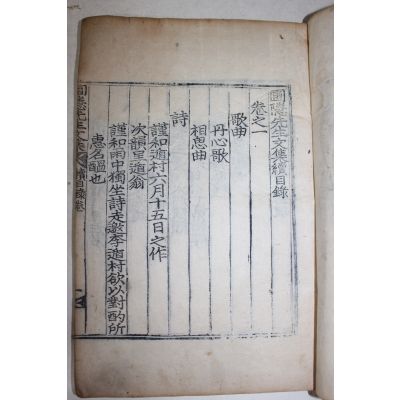 圃隱先生文集續目錄
卷之一
歌曲
丹心歌
相思曲
詩
謹和遁村六月十五日之作
次韻呈遁翁
謹和雨中獨坐詩走邀李遁村欲以對酌所
惠名醞也
圃隱先生文集續目錄卷